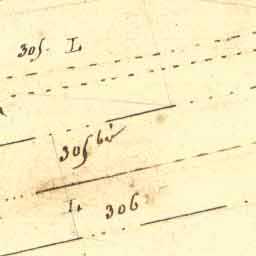 305. L
305 bis
L.
306